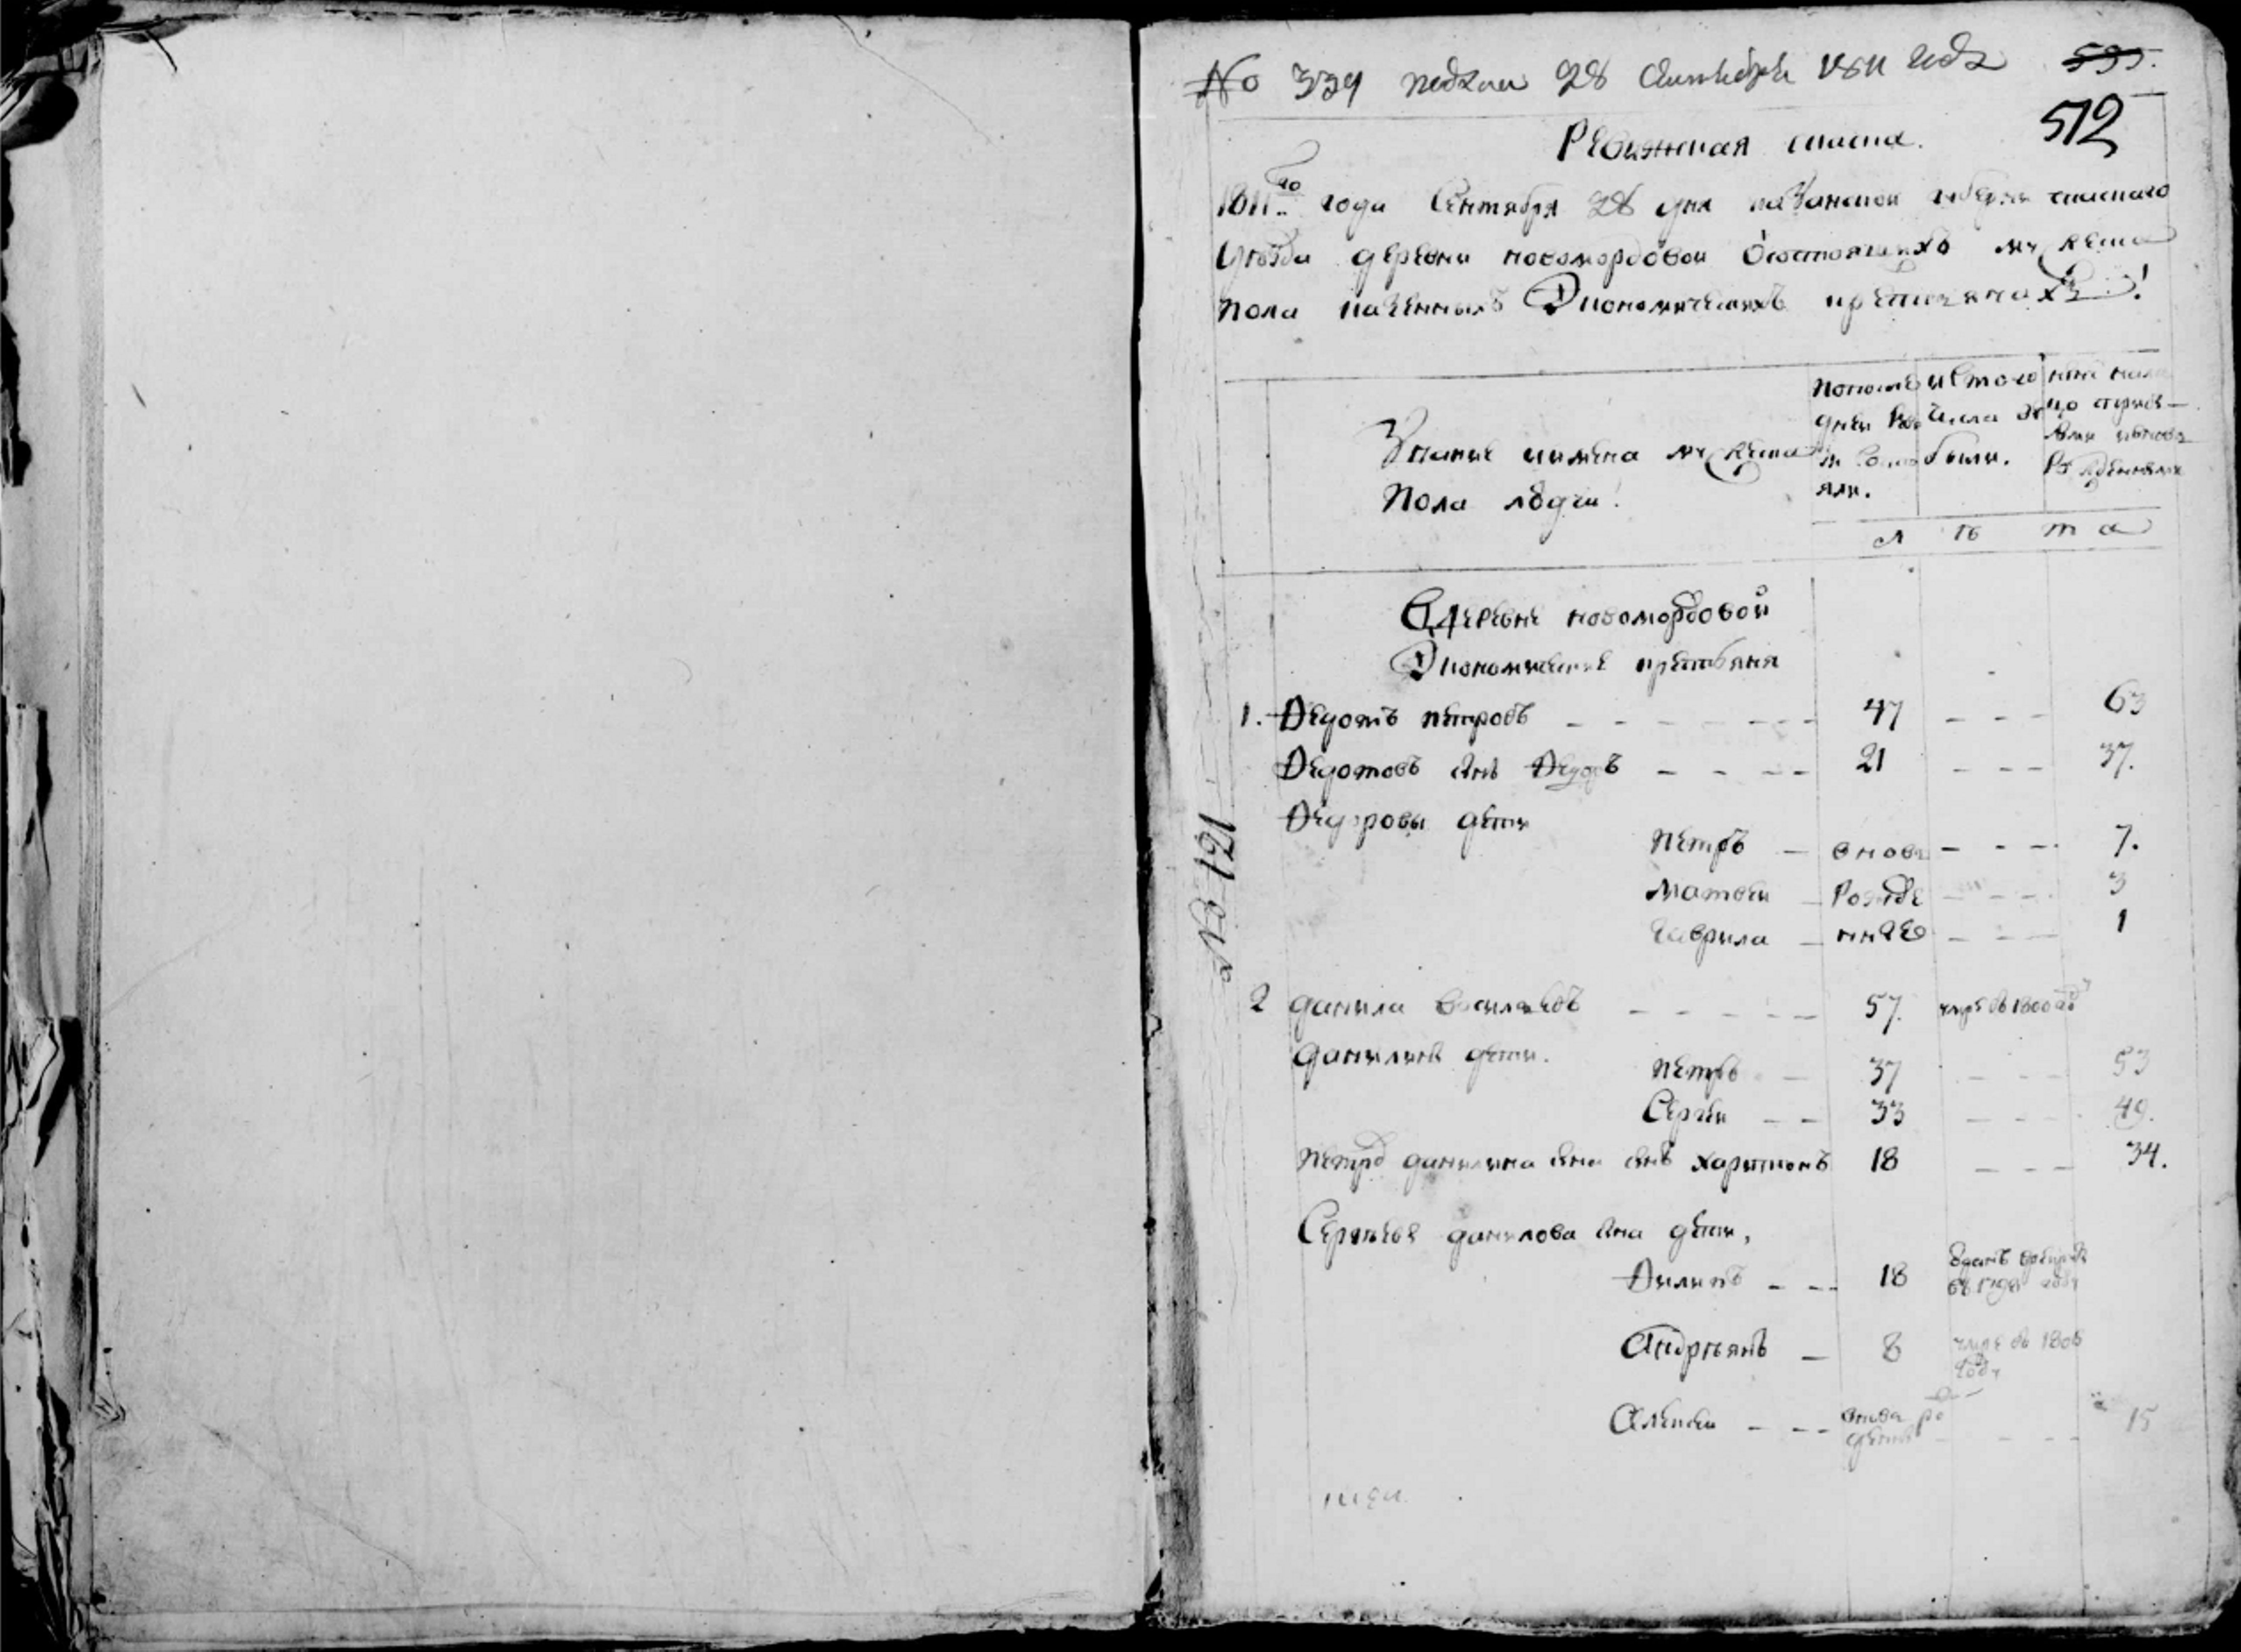 No 339 подана 28 сентября 1811 года 595.
512
Ревижская сказка.
1811го года Сентября 28 дня казанской губерни спаскаго
уезда деревни новомордовой осостоящихъ мужеска
пола казенныхъ Экономическихъ крестьянахъ!
Звание имена мужеска
пола люди!
По последней ревизи состояли.
Ис того числа выбыли.
ныне налицо
л ѣ т а
В деревне новомордовой
Экономические крестьяня
1. Ѳедотъ петровъ 47 63
Ѳедотовъ снъ Ѳедоръ 21 37.
Ѳедоровы дети
петръ вновь 7.
матвеи рожде 3
гаврила нные 1
2 данила васильевъ 57. умре въ 1800 годъ
данилины дети.
петръ 37 53
Сергеи 33 49.
петра данилина сна снъ харитонъ 18 34.
Сергеевы данилова сна дети,
Ѳилипъ 18 вданъ врекруты въ году
Андреянъ 8 умре въ 1806 году
Алексеи вновь 15
№ 121